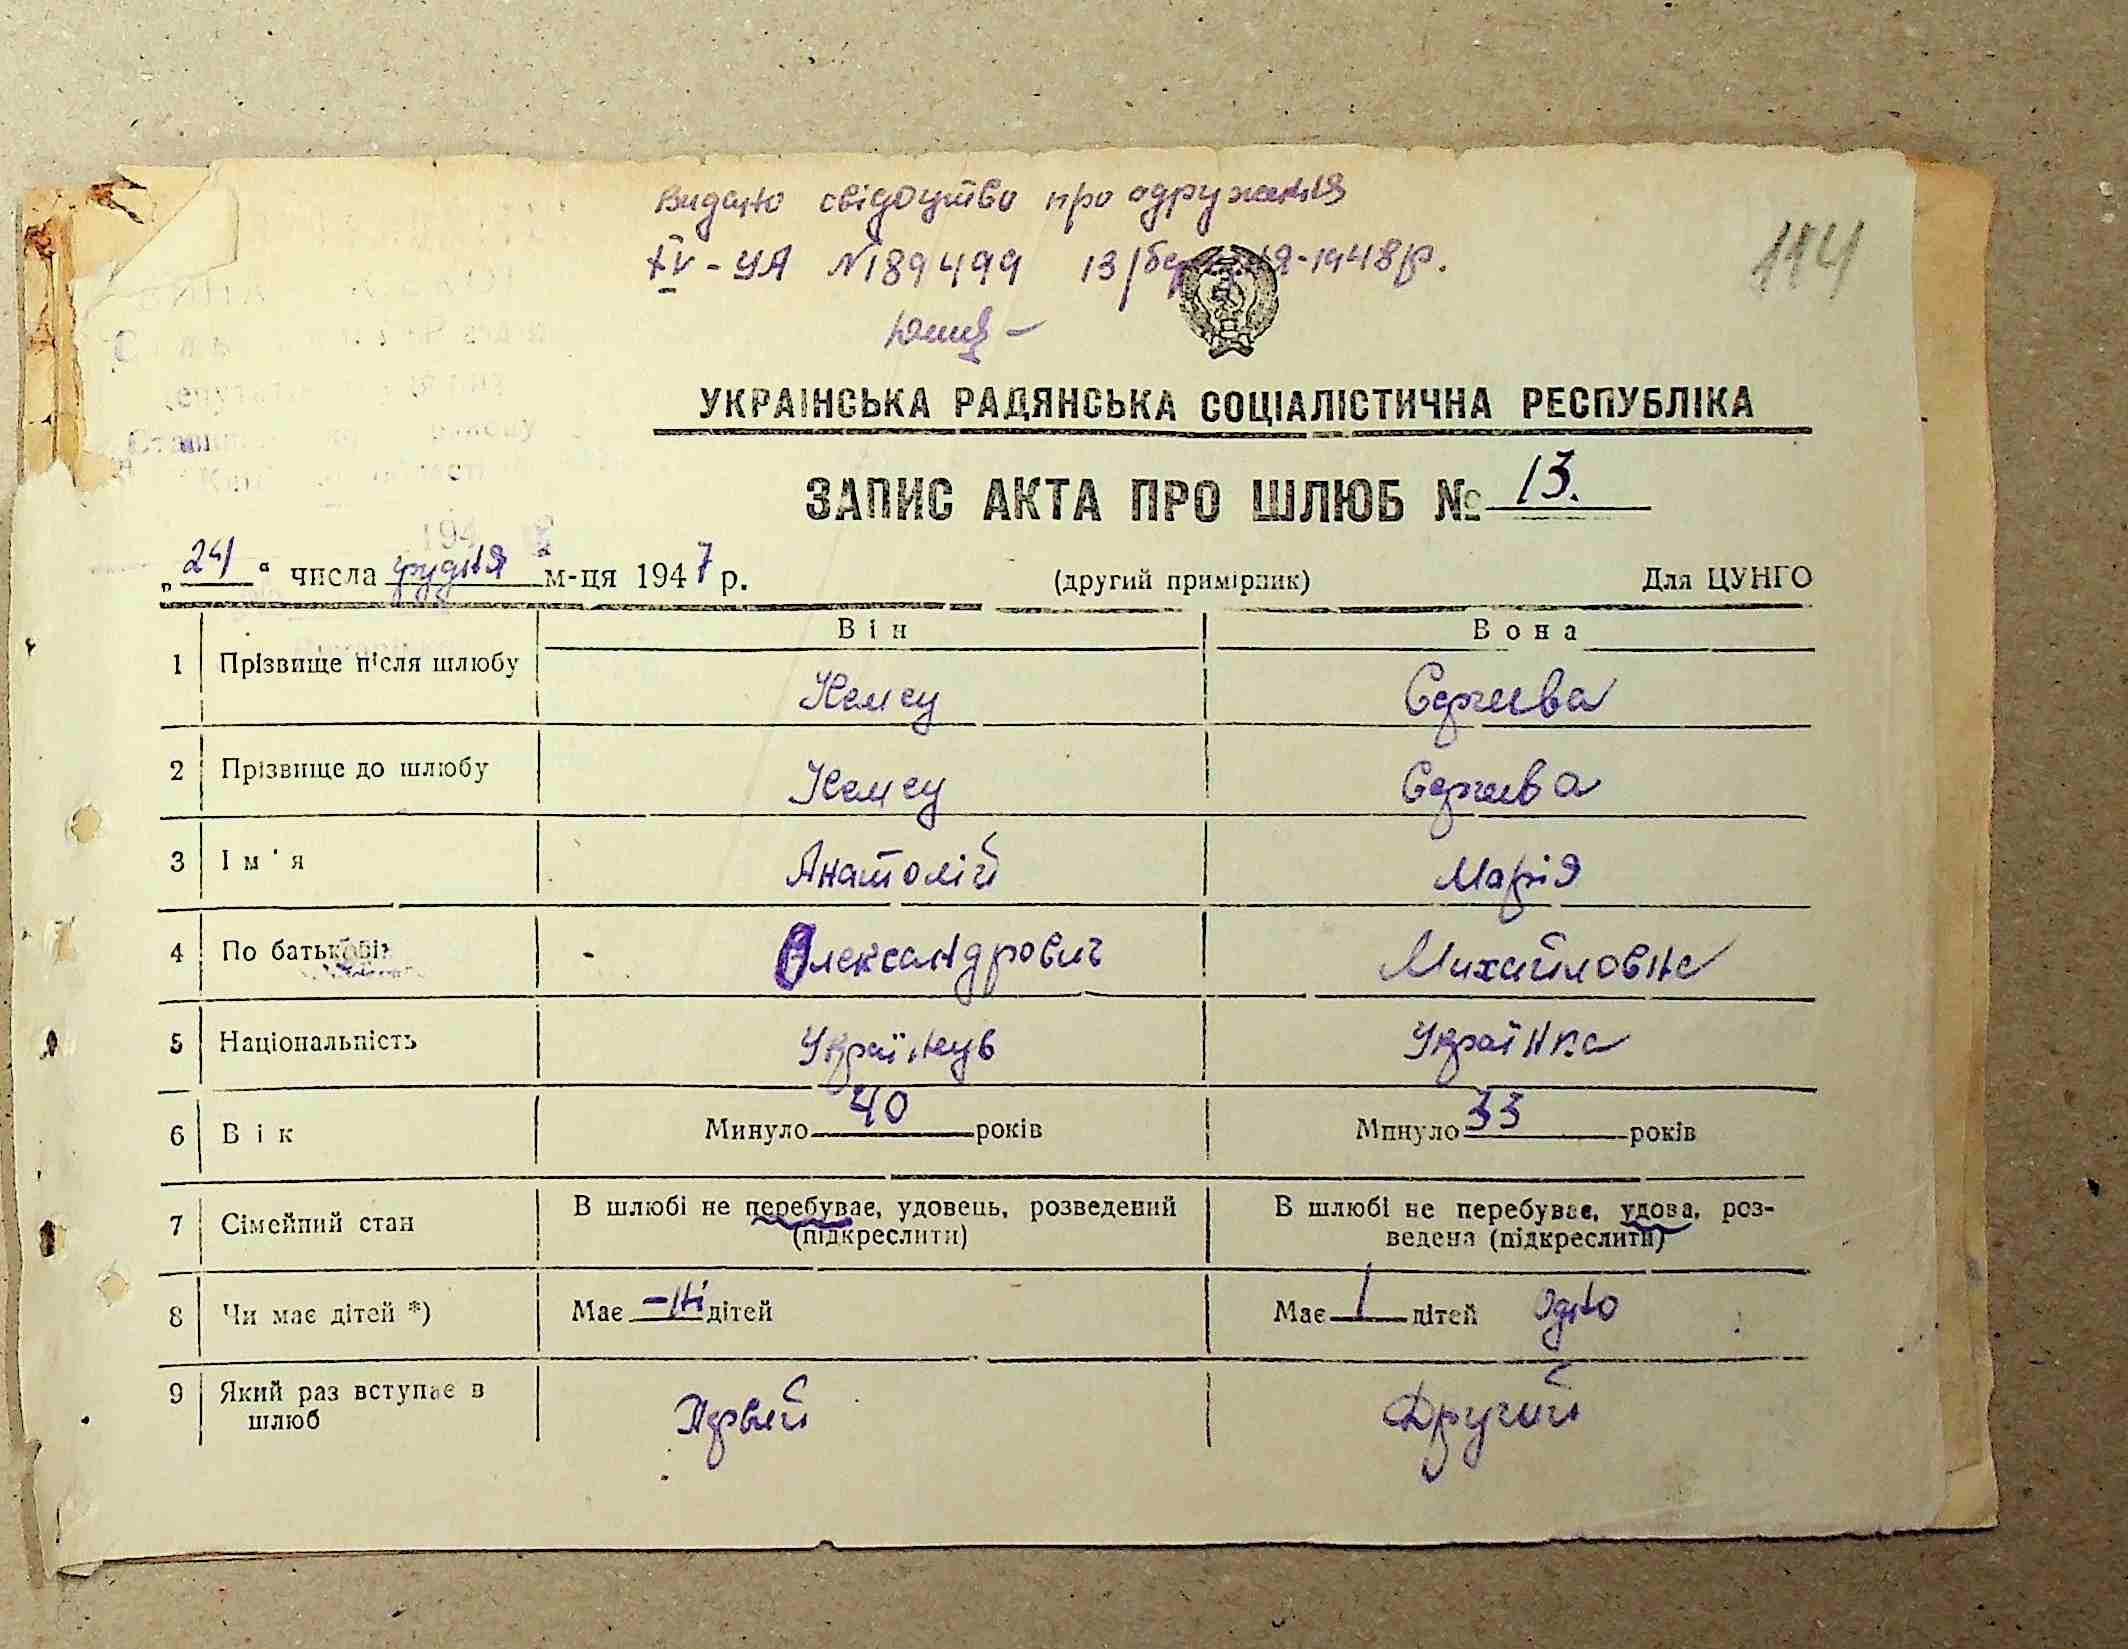 Видано свідоцтво про одруження
IV-УА №189499 13/березня-1948р.
114
УКРАЇНСЬКА РАДЯНСЬКА СОЦІАЛІСТИЧНА РЕСПУБЛІКА
ЗАПИС АКТА ПРО ШЛЮБ № 13.
„24“ числа грудня м-ця 1947 р. (другий примірник) Для ЦУНГО
Він Вона
1 Прізвище після шлюбу Немец Сергиева
2 Прізвище до шлюбу Немец Сергиева
3 Ім'я Анатолій Марія
4 По батькові Олександрович Михайловна
5 Національність Українець Українка
6 Вік Минуло 40 років Минуло 33 років
7 Сімейний стан В шлюбі не перебуває, удовець, розведений В шлюбі не перебуває, удова, роз-
(підкреслити) ведена (підкреслити)
8 Чи має дітей *) Має -ні дітей Має 1 дітей Одно
9 Який раз вступає в
шлюб Первий Другий